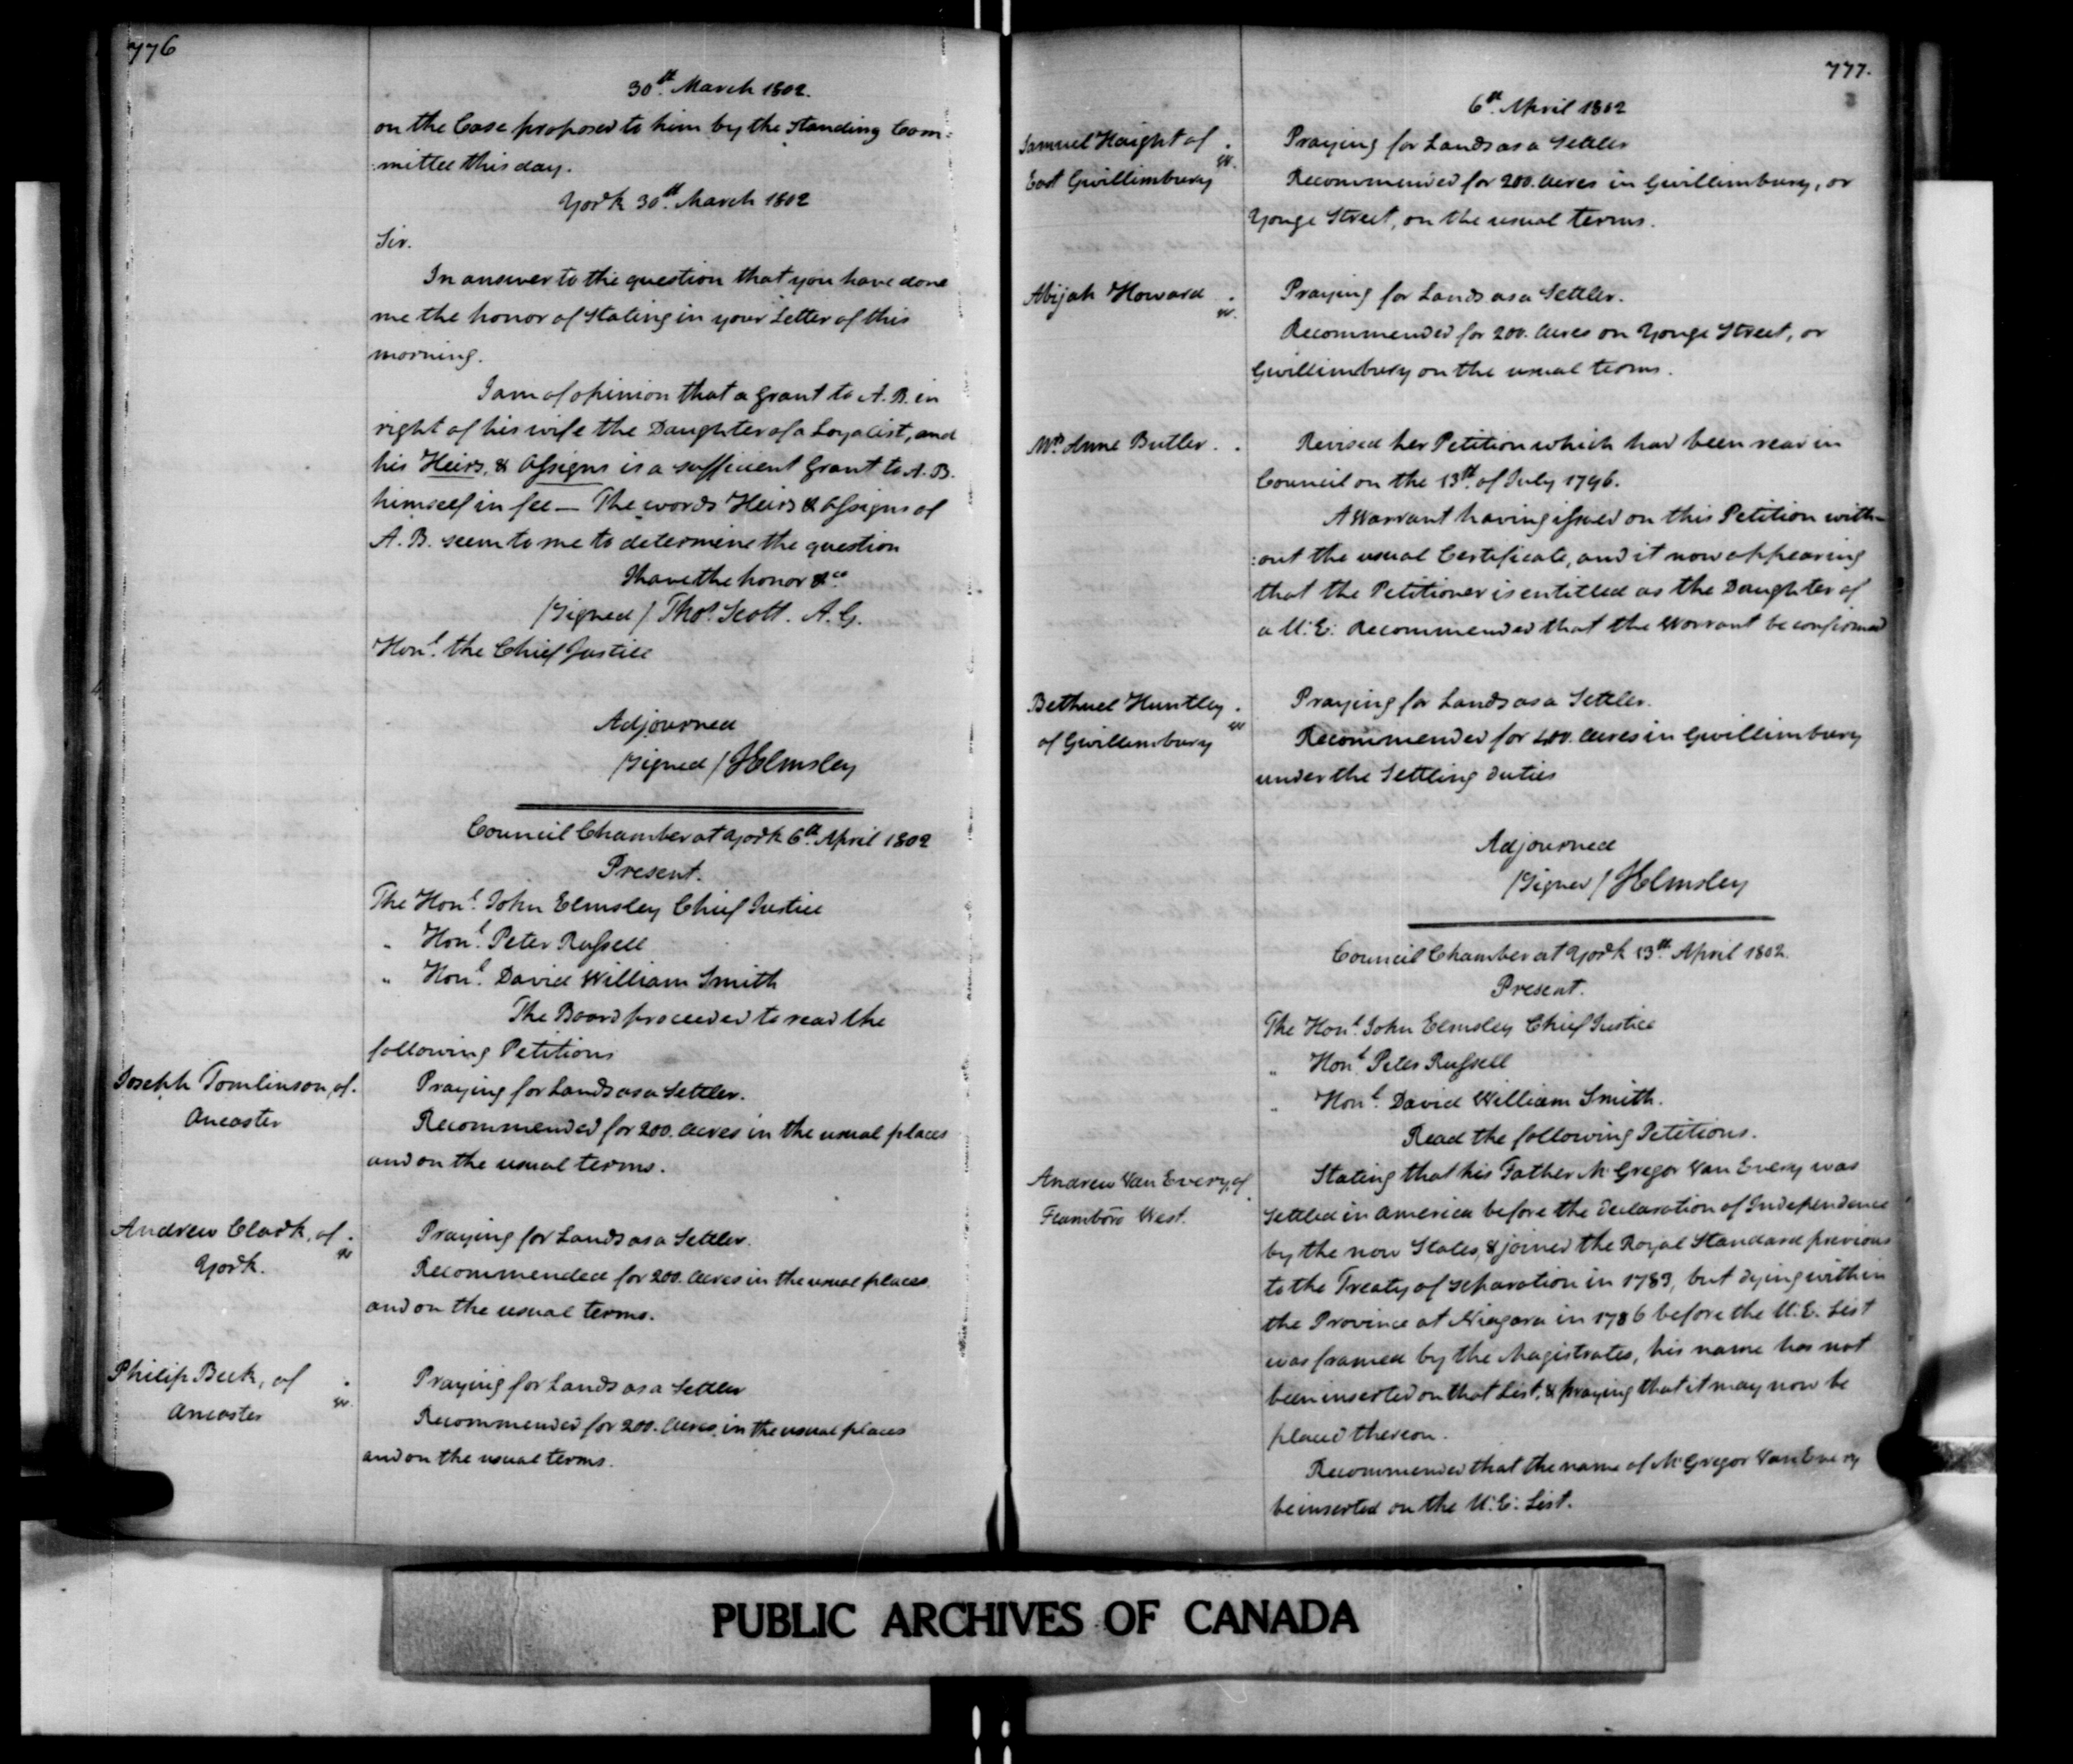 776
30th. March 1802.
on the Case proposed to him by the Standing Com=
:mittee this day.
York 30th. March 1802
Sir.
In answer to the question that you have done
me the honor of Stating in your Letter of this
morning.
I am of opinion that a grant to A. B. in
right of his wife the Daughter of a Loyalist, and
his Heirs, & Assigns is a sufficient Grant to A. B.
himself in fee — The words Heirs & Assigns of
A. B. seem to me to determine the question
I have the honor &ca
/Signed/ Thos. Scott. A. G.
Honl. the Chief Justice
Adjourned
/Signed/ J Elmsley
Council Chamber at York 6th. April 1802
Present.
The Honl. John Elmsley Chief Justice
" Honl. Peter Russell
" Honl. David William Smith
The Board proceeded to read the
following Petitions
Joseph Tomlinson, of.
Ancaster
Praying for Lands as a Settler.
Recommended for 200. Acres in the usual places
and on the usual terms.
Andrew Clark, of.
York.
Praying for Lands as a Settler.
Recommended for 200. Acres in the usual places
and on the usual terms.
Philip Beek, of .
Ancaster
Praying for Lands as a Settler
Recommended for 200. Acres, in the usual places
and on the usual terms.
777.
6th. April 1802
Samuel Haight of .
East Gwillimbury
Praying for Lands as a Settler
Recommended for 200. Acres in Gwillimbury, or
Yonge Street, on the usual terms.
Abijah Howard .
Praying for Lands as a Settler.
Recommended for 200. Acres on Yonge Street, or
Gwillimbury on the usual terms.
Mrs. Anne Butler. .
Revised her Petition which had been read in
Council on the 13th. of July 1796.
A Warrant having issued on this Petition with=
:out the usual Certificate, and it now appearing
that the Petitioner is entitled as the Daughter of
a U. E. Recommended that the Warrant be confirmed
Bethuel Huntley .
of Gwillimbury
Praying for Lands as a Settler.
Recommended for 200. Acres in Gwillimbury
under the Settling duties
Adjourned
/Signed/ J Elmsley
Council Chamber at York 13th. April 1802.
Present.
The Honl. John Elmsley Chief Justice
" Honl. Peter Russell
" Honl. David William Smith.
Read the following Petitions.
Andrew Van Every, of
Flamboro West.
Stating that his Father McGregor Van Every was
settled in America before the declaration of Independence
by the now States, & joined the Royal Standard previous
to the Treaty of separation in 1783, but dying within
the Province at Niagara in 1786 before the U. E. List
was framed by the Magistrates, his name has not
been inserted on that List, & praying that it may now be
placed thereon.
Recommended that the name of McGregor Van Every
be inserted on the U. E. List.
PUBLIC ARCHIVES OF CANADA